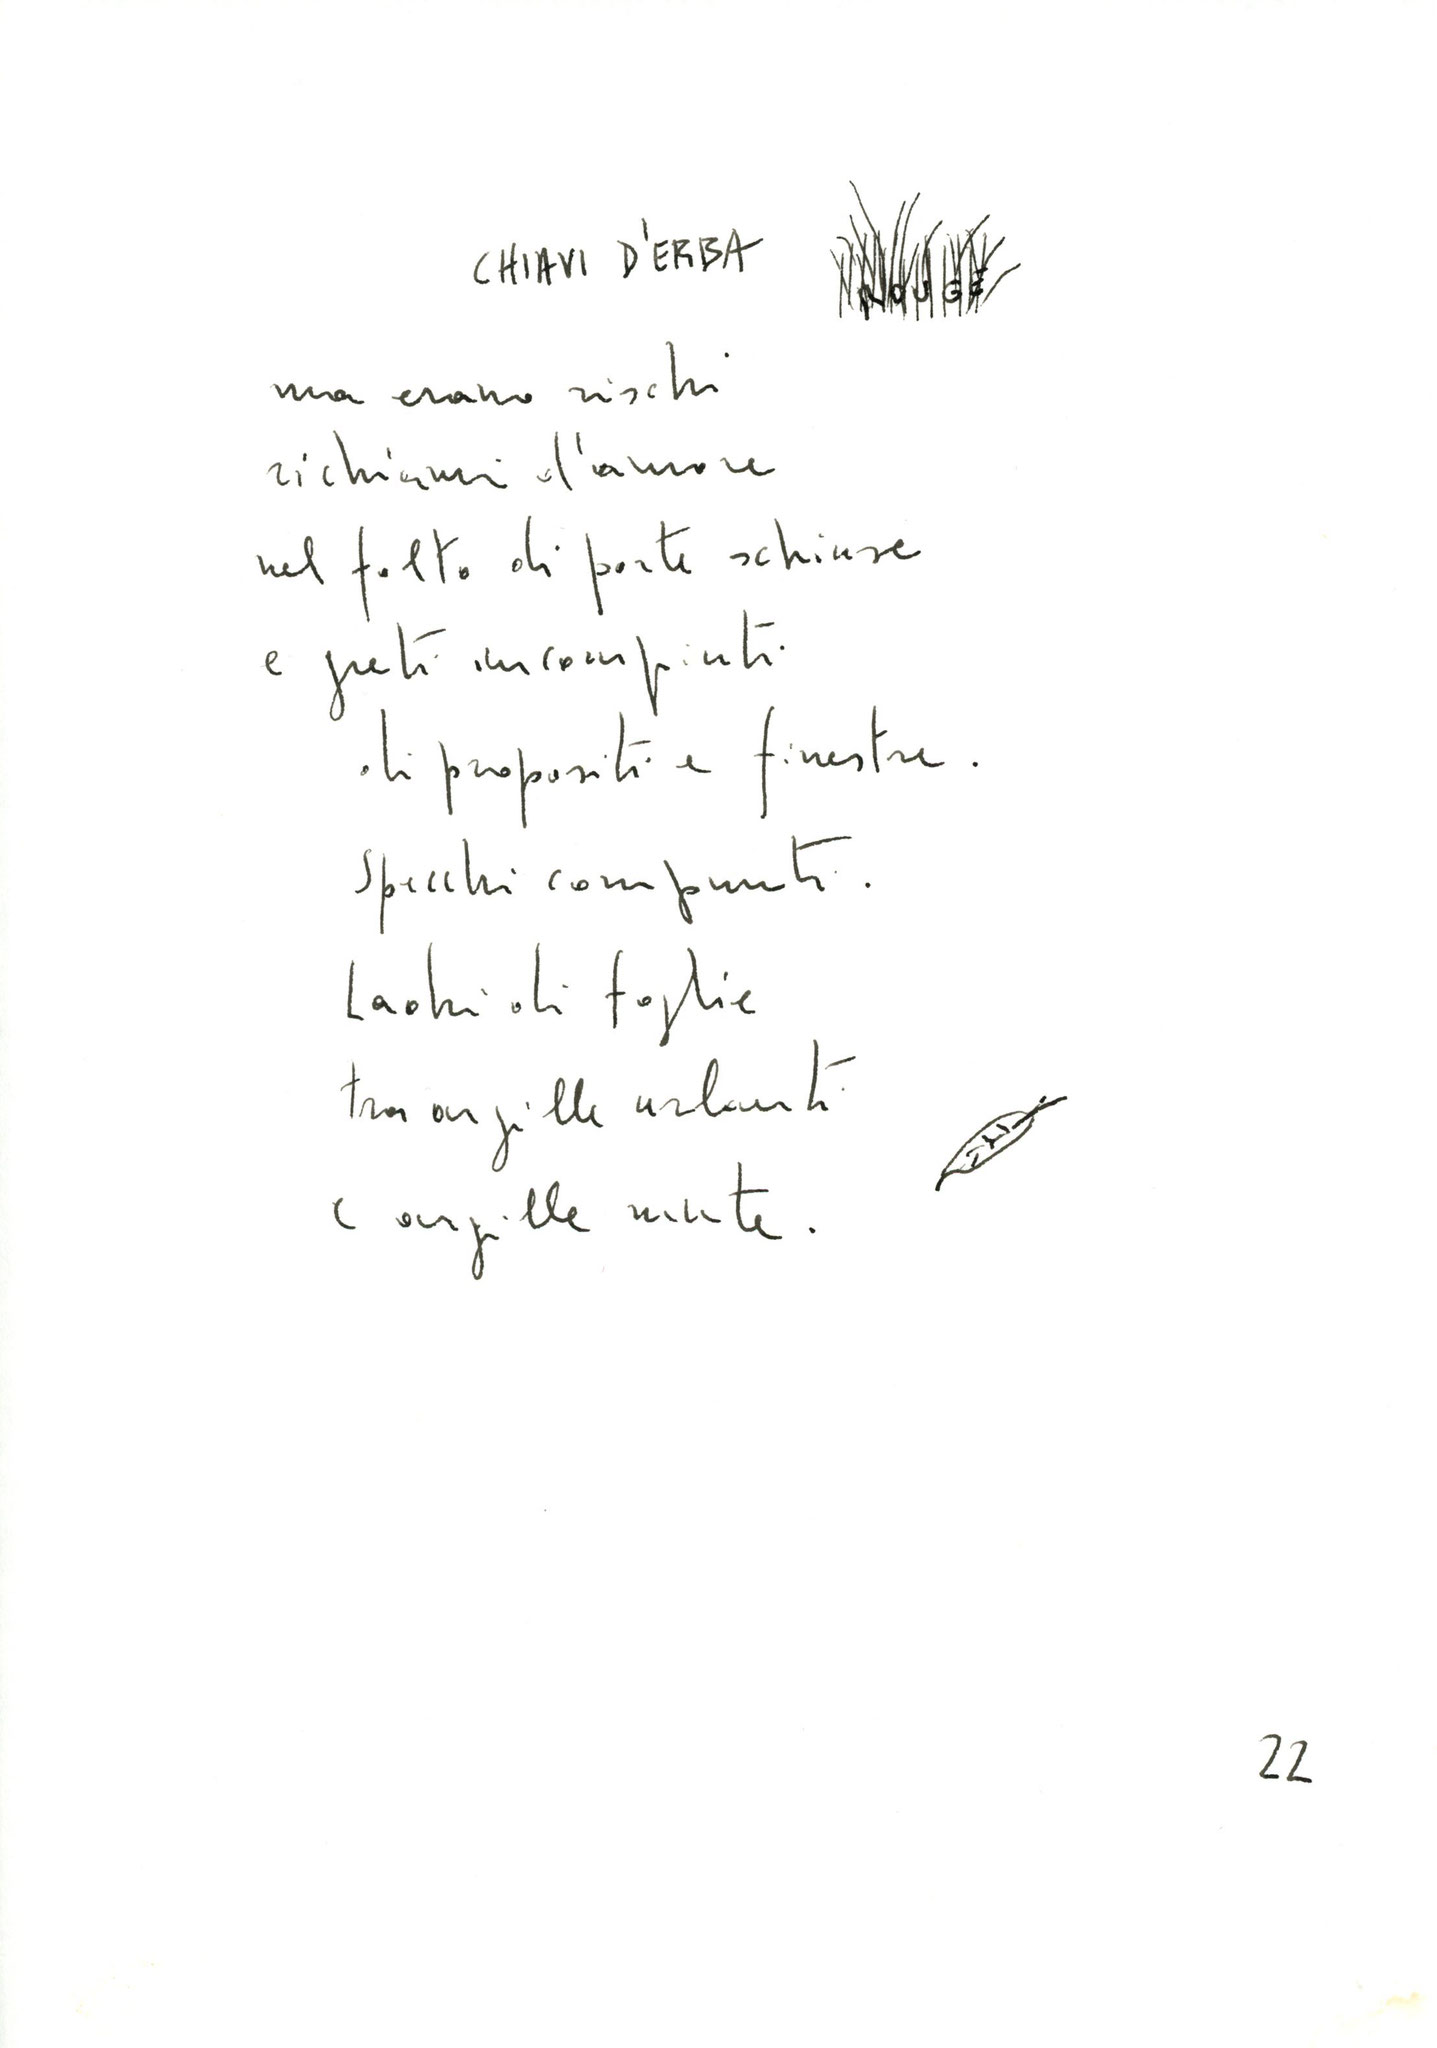 CHIAVI D'ERBA
NOUGÉ
ma erano rischi
richiami d'amore
nel folto di porte schiuse
e greti incompiuti
di propositi e finestre.
Specchi compunti.
Ladri di foglie
tra argille urlanti
e argille mute.
22